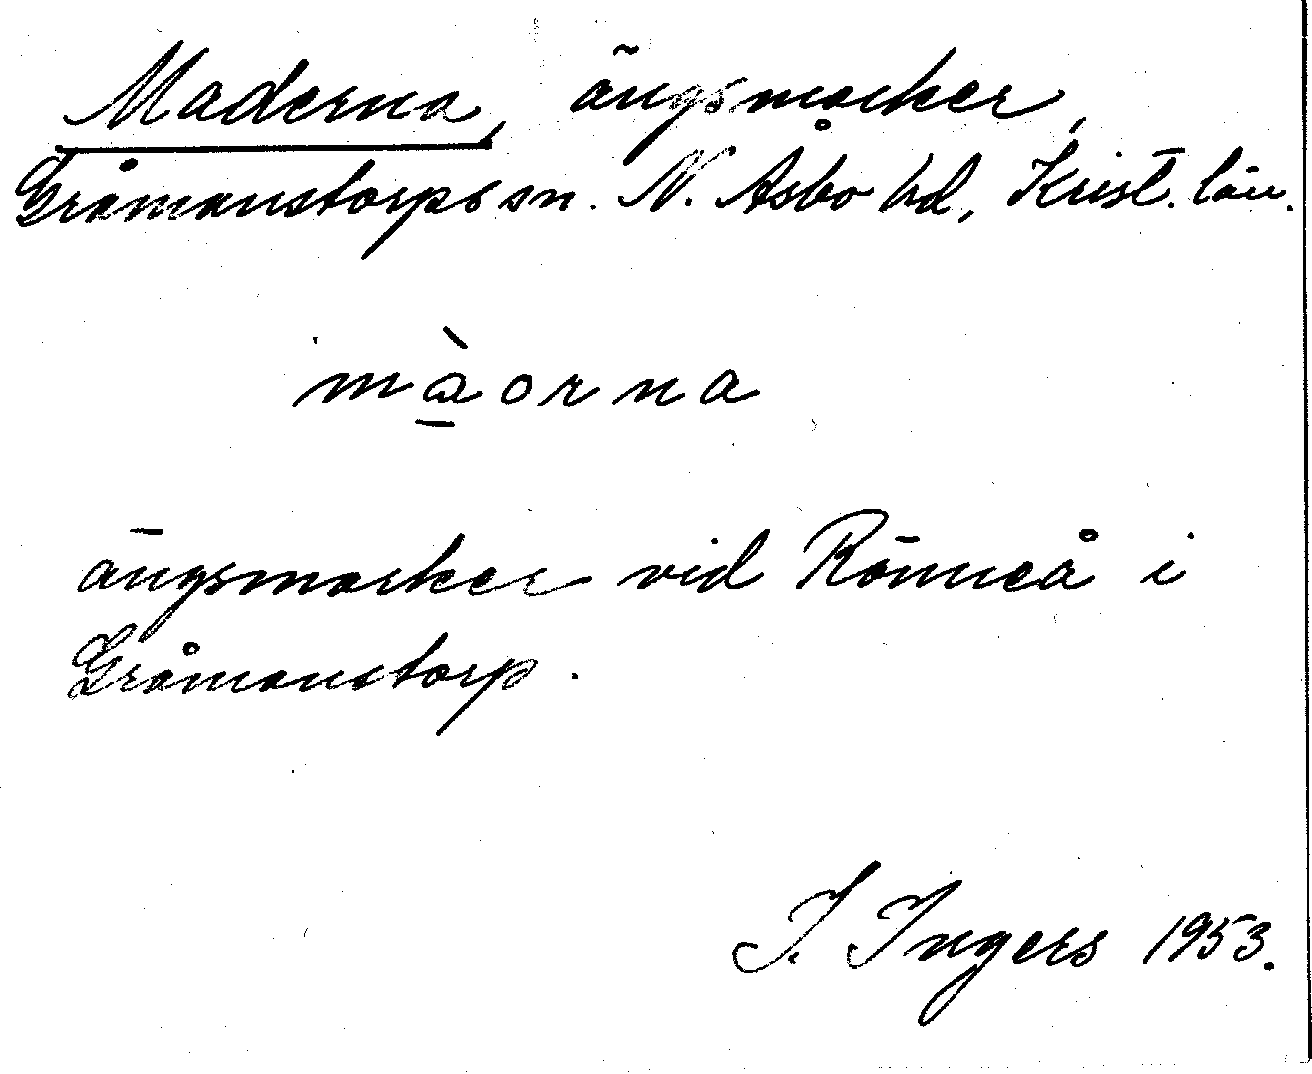 Maderna, ängsmarker,
Gråmanstorps sn. N. Åsbo hd, Krist. län.
mạ̀orna
ängsmarker vid Rönneå i
Gråmanstorp.
I. Ingers 1953.